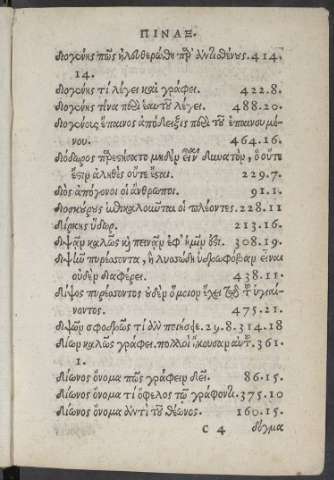 ΠΙΝΑΞ.
Διογένης πῶς ἠλευθερώθη παρ' Ἀντισθένους. 414.
14.
Διογένης τί λέγει καὶ γράφει. 422.8.
Διογένης τίνα περὶ ἑαυτοῦ λέγει. 488.20.
Διογένους ἔπαινος ἀπόδειξις περὶ τοῦ ἐπαινουμέ-
νου. 464.16.
Διόδωρος μηδὲν εἶναι δυνατὸν, ὃ οὔτε
ἔστιν ἀληθὲς οὔτε ἔσται. 229.7.
Διὸς ἀπόγονοι οἱ ἄνθρωποι. 91.1.
Διοσκούρους ἐπικαλοῦνται οἱ πλέοντες. 228.11
Δίρκης ὕδωρ. 213.16.
Διψᾶν καλῶς καὶ πεινᾶν ἐφ' ἡμῖν ὅτι. 308.19.
Δίψαν πυρέσσοντα, ἢ λυσσώδη ὑδροφόβαν εἶναι
οὐδὲν διαφέρει. 438.11.
Δίψος πυρέσσοντος οὐδὲν ὅμοιον ἔχει τῷ τοῦ ὑγιαί-
νοντος. 475.21.
Διψῶν σφοδρῶς τί ἂν ποιήσῃς. 29.8. 314.18
Δίων καλῶς γράφει. πολλοὶ ἤκουσαν αὐτοῦ. 361.
1.
Δίωνος ὄνομα πῶς γράφειν δεῖ. 86.15.
Δίωνος ὄνομα τί ὄφελος τῷ γράφοντι. 375.10
Δίωνος ὄνομα ἀντὶ τοῦ Θέωνος. 160.15.
C 4 δόγμα